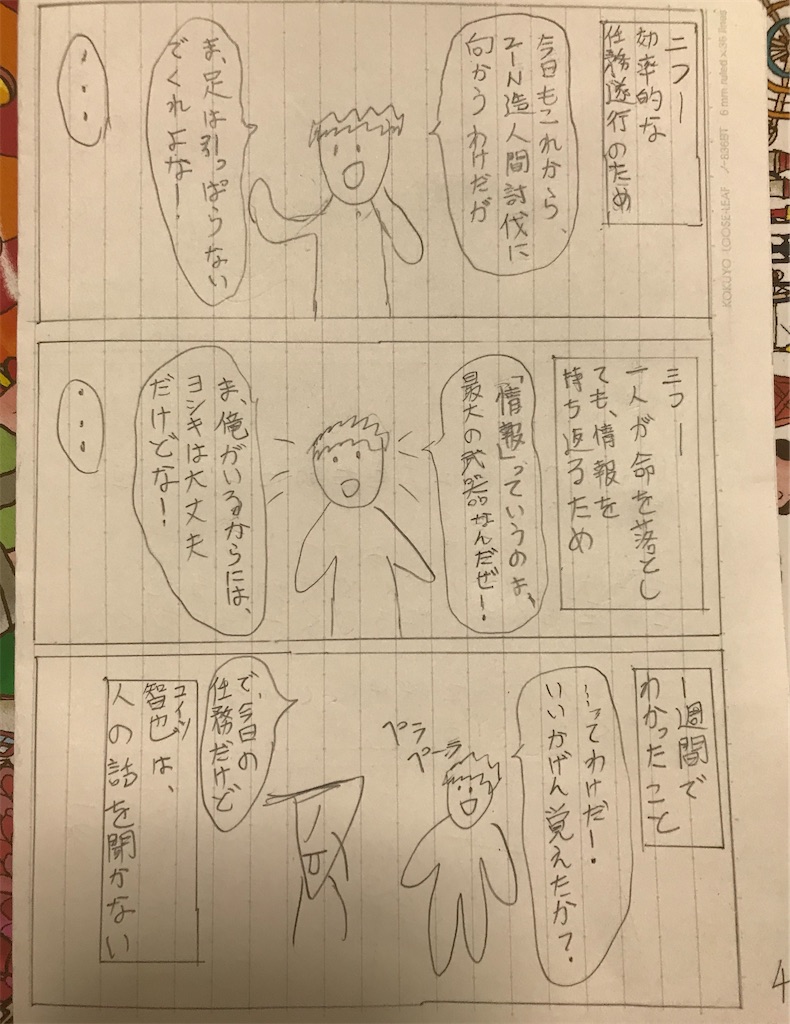 二つー
効率的な
任務遂行のため
今日もこれから、
エーN造人間討伐に
向かうわけだが
ま、足は引っぱらない
でくれよな！
・・・
三つー
一人が命を落とし
ても、情報を
持ち返るため
「情報」っていうのは、
最大の武器なんだぜ！
ま、俺がいるからには、
ヨシキは大丈夫
だけどな！
・・・
一週間で
わかったこと
…ってわけだー！
いいかげん覚えたか？
ペラ
ペーラ
で、今日の
任務だけど
コイツ
智也は、
人の話を聞かない
4
KOKUYO LOOSE-LEAF ノ-836BT 6 mm ruled x 36 lines